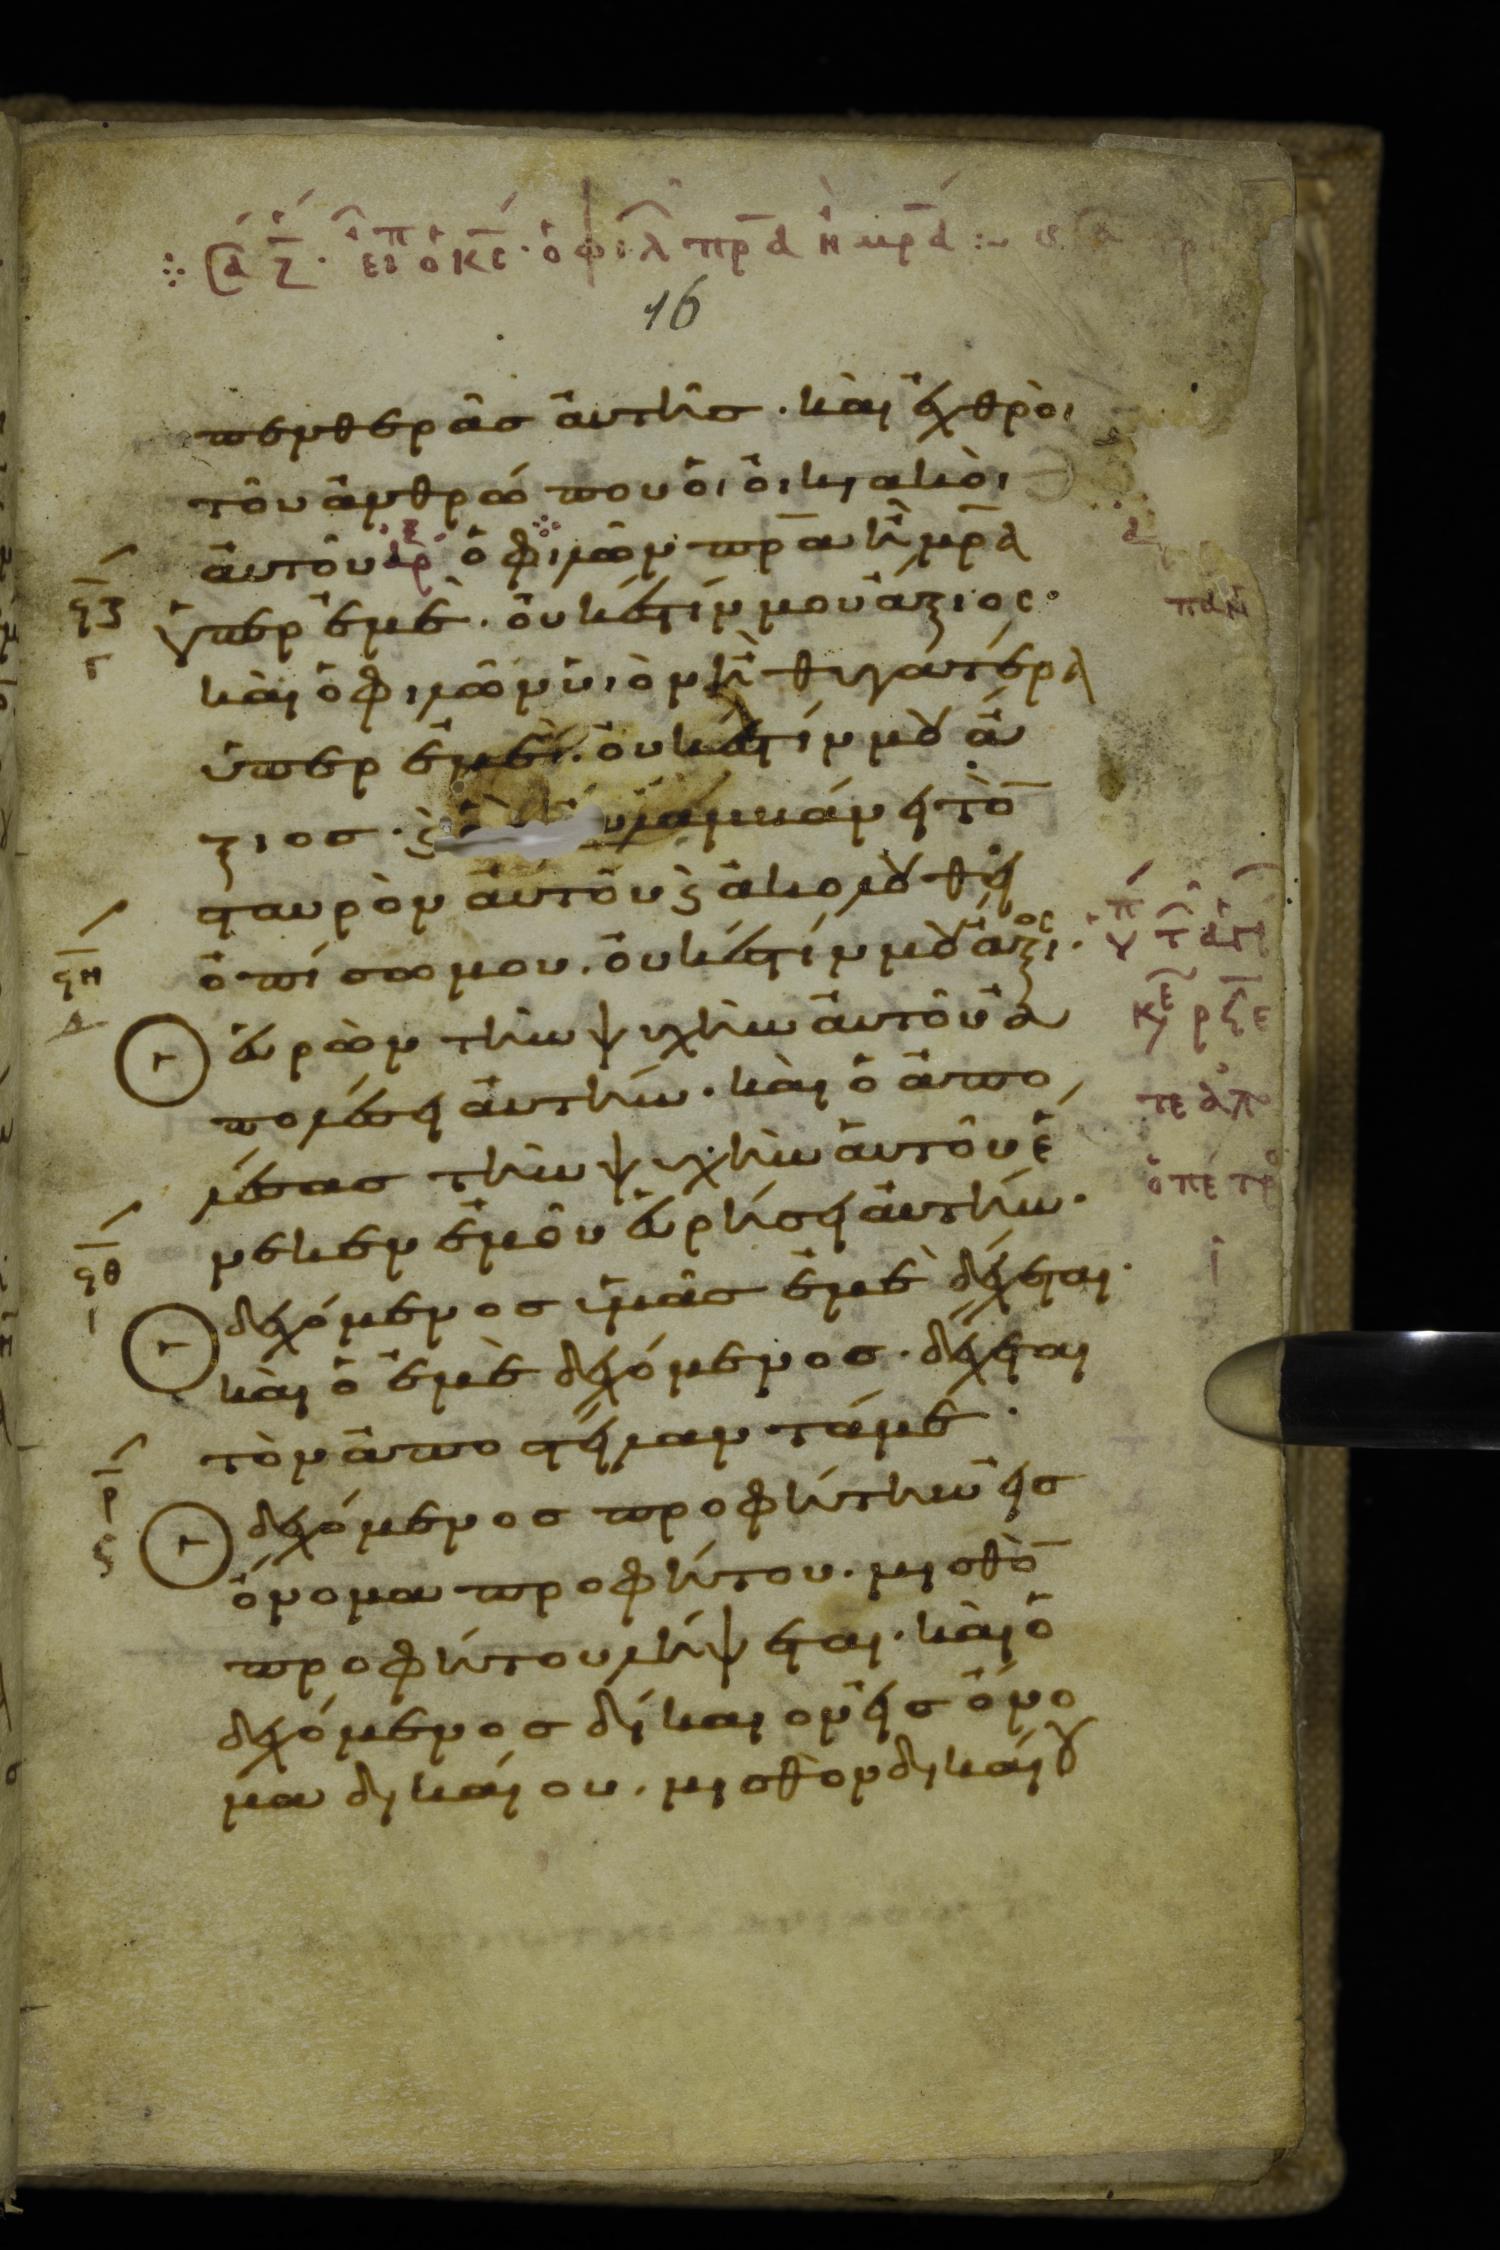 σα ζ. ειπ ο κς. ο φιλ πρα η μρα :~
16
πενθερᾶσ ἀυτῆσ. καὶ ἐχθροὶ
τοῦ ἀνθρώπου ὁι ὀικιακὸι
ἀυτοῦ αρξ ὁ φιλῶν πρα ἢ μρα
ϟζ
γ
ὑπερ ἐμὲ. ὀυκέστίν μου ἄξιος.
καὶ ὁ φιλῶν ὑιὸν ἢ θυγατέρα
ὑπερ ἐμὲ. ὀυκέστίν μȣ ἄ
ξιοσ. λαμβάνει τὸ
σταυρὸν ἀυτοῦ ϗ ἀκολȣθεῖ
ὀπίσω μου. ὀυκέστίν μȣ ἄξιος.
ϟη
Ὁ ἑυρὼν τὴν ψυχὴν ἀυτοῦ ἀ
πολέσει ἀυτήν. καὶ ὁ ἀπο
λέσασ τὴν ψυχὴν ἀυτοῦ ἕ
νεκεν ἐμοῦ ἑυρήσει ἀυτήν.
ϟθ
Ὁ δεχόμενοσ ὑμᾶσ ἐμὲ δέχεται.
καὶ ὁ ἐμὲ δεχόμενοσ. δέχεται
τὸν ἀποστείλαντάμε.
ρ
Ὁ δεχόμενοσ προφήτην εἰσ
ὄνομα προφήτου. μισθὸ
προφήτου λήψεται. καὶ ὁ
δεχόμενοσ δίκαιον εἰσ ὄνο
μα δικαίου. μισθον δικαίȣ